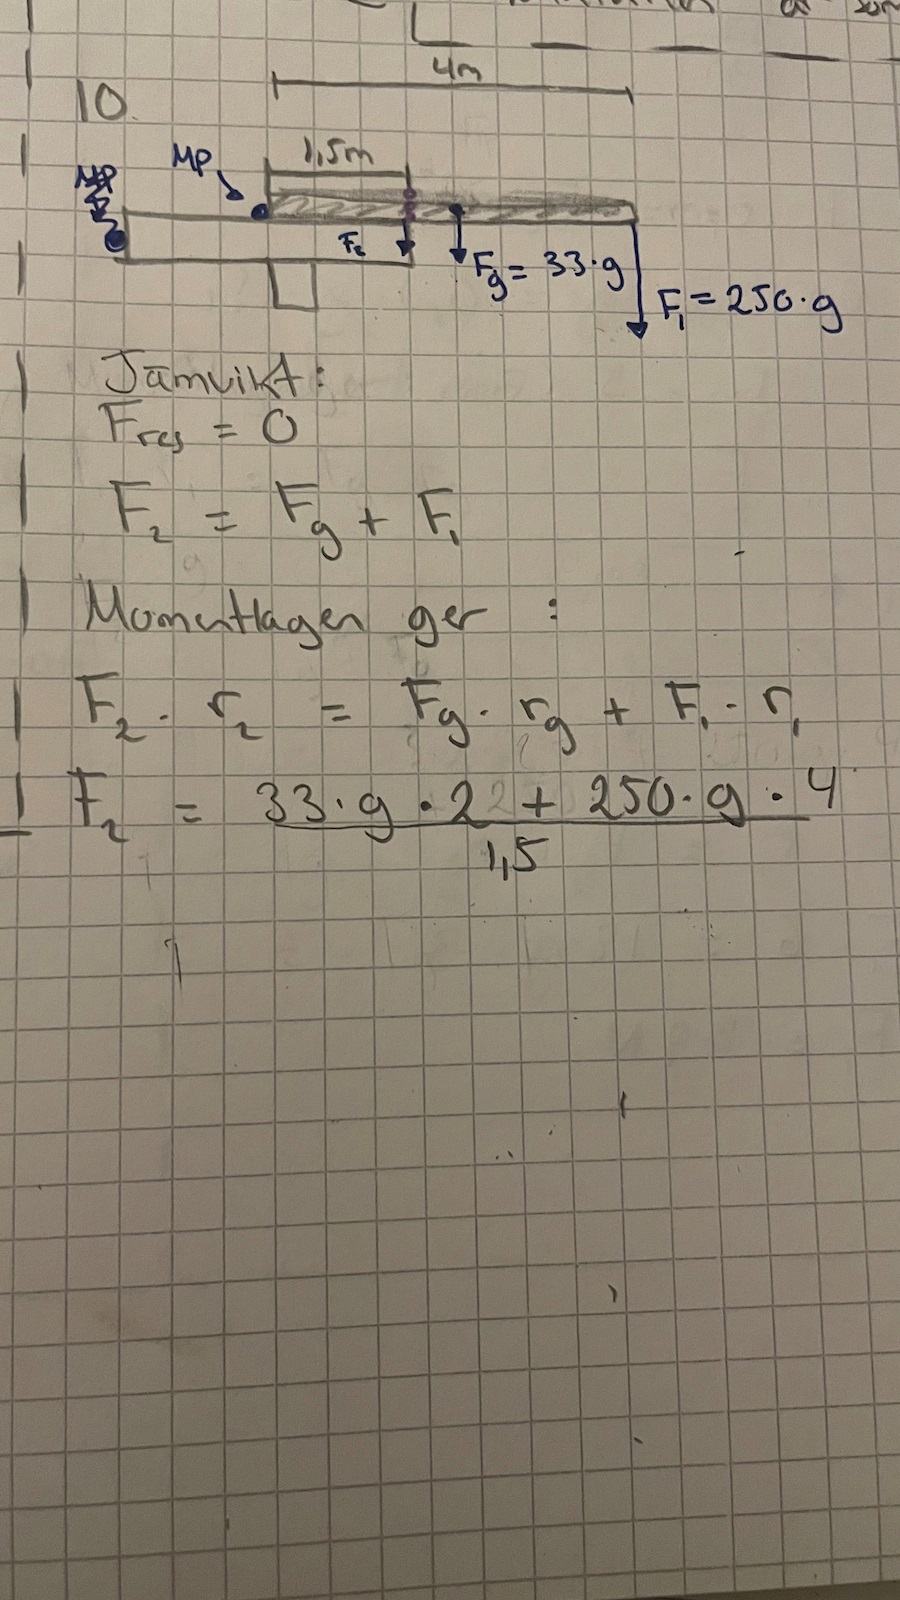 4m
10.
1,5m
MP
MP
F₂
Fg = 33·g
F₁ = 250·g
Jämvikt:
Fres = 0
F₂ = Fg + F₁
Momentlagen ger :
F₂ · r₂ = Fg · rg + F₁ · r₁
F₂ = 33·g · 2 + 250·g · 4
1,5